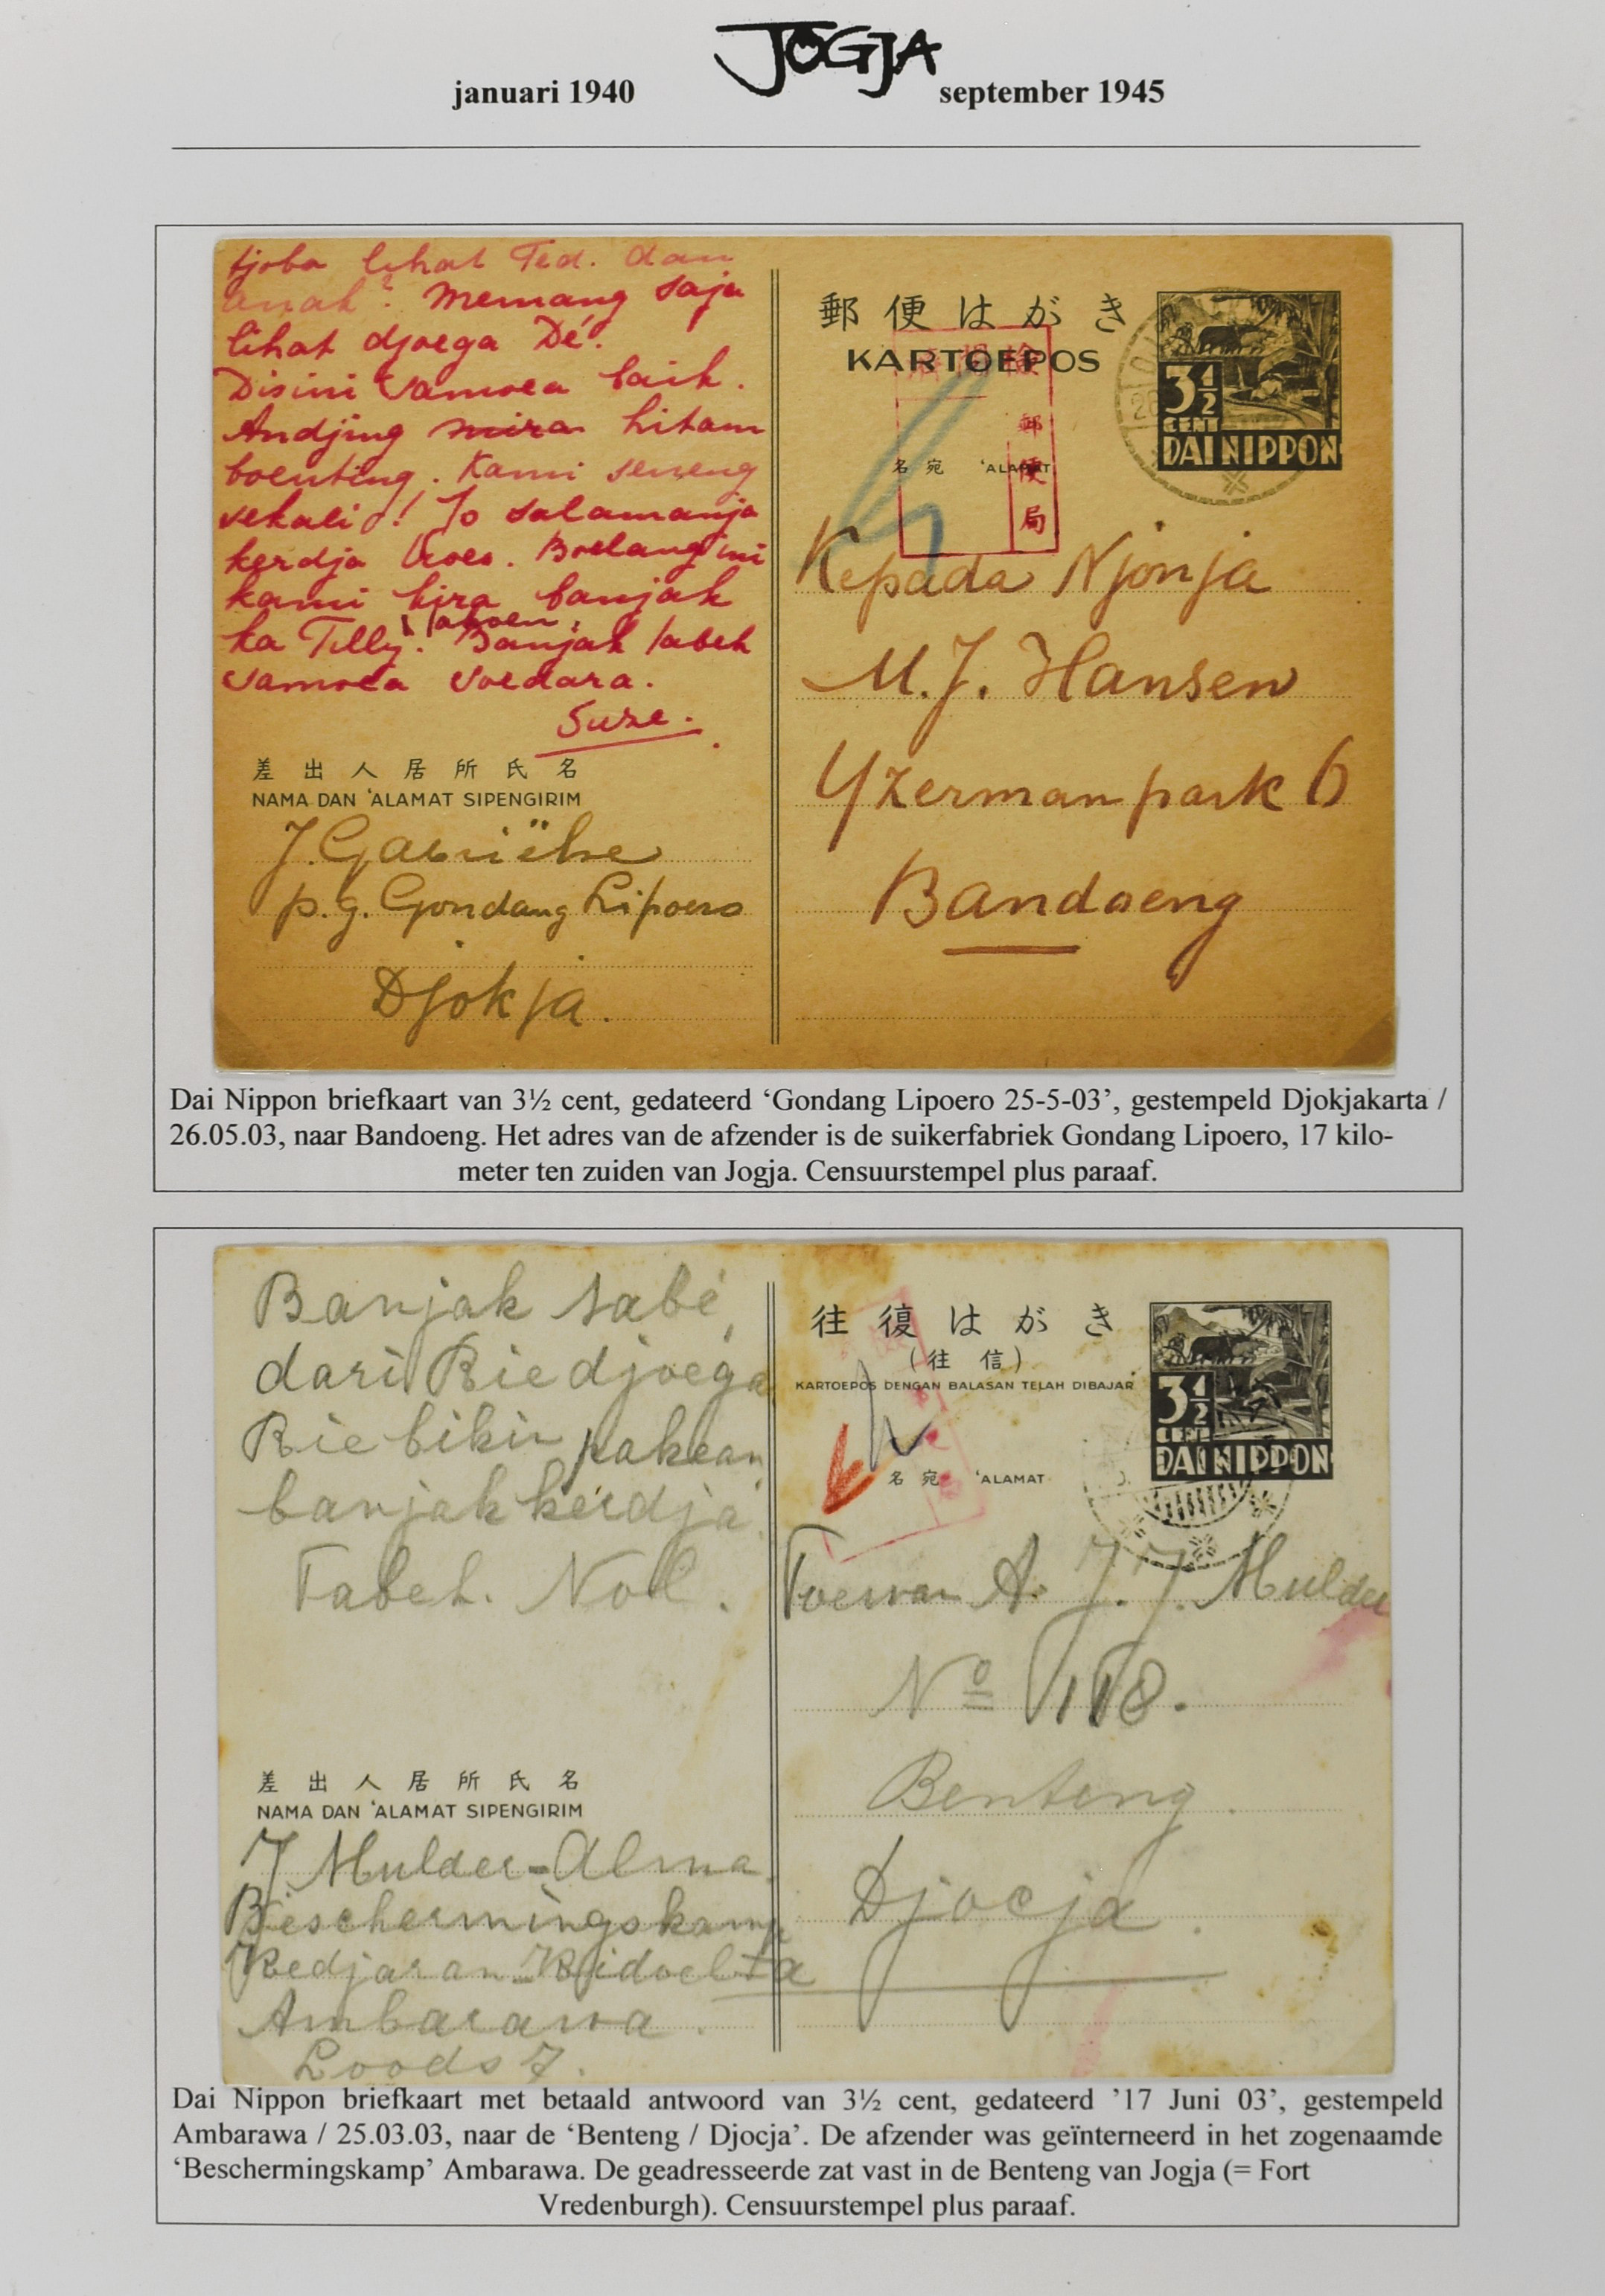 JOGJA
januari 1940 september 1945
tjoba lihat Ted. dan
anak? Memang saja
lihat djoega Dé.
Disini samoea baik.
Andjing mira hitam
boenting. Kami seneng
sekali! Jo salamanja
kerdja troes. Boelang ini
kami kira banjak
taboen.
ka Tilly. Banjak tabeh
samoea soedara.
Suze.
差出人居所氏名
NAMA DAN 'ALAMAT SIPENGIRIM
J. Gabriëlse
p.g. Gondang Lipoero
Djokja.
郵便はがき
KARTOEPOS
3½
CENT
DAI NIPPON
郵便局
名宛 'ALAMAT
Kepada Njonja
M.J. Hansen
Yzermanpark 6
Bandoeng
Dai Nippon briefkaart van 3½ cent, gedateerd ‘Gondang Lipoero 25-5-03’, gestempeld Djokjakarta /
26.05.03, naar Bandoeng. Het adres van de afzender is de suikerfabriek Gondang Lipoero, 17 kilo-
meter ten zuiden van Jogja. Censuurstempel plus paraaf.
Banjak tabé,
dari Rie djoega
Rie bikin pakean
banjak kerdja.
Tabeh. Nol.
差出人居所氏名
NAMA DAN 'ALAMAT SIPENGIRIM
J Mulder-Alma
Beschermingskamp
Kedjaran Kidoel 1a
Ambarawa.
Loods 7.
往復はがき
(往信)
KARTOEPOS DENGAN BALASAN TELAH DIBAJAR
3½
CENT
DAI NIPPON
名宛 'ALAMAT
Toewan A. J. J. Mulder
No 118.
Benteng.
Djocja.
Dai Nippon briefkaart met betaald antwoord van 3½ cent, gedateerd ’17 Juni 03’, gestempeld
Ambarawa / 25.03.03, naar de ‘Benteng / Djocja’. De afzender was geïnterneerd in het zogenaamde
‘Beschermingskamp’ Ambarawa. De geadresseerde zat vast in de Benteng van Jogja (= Fort
Vredenburgh). Censuurstempel plus paraaf.